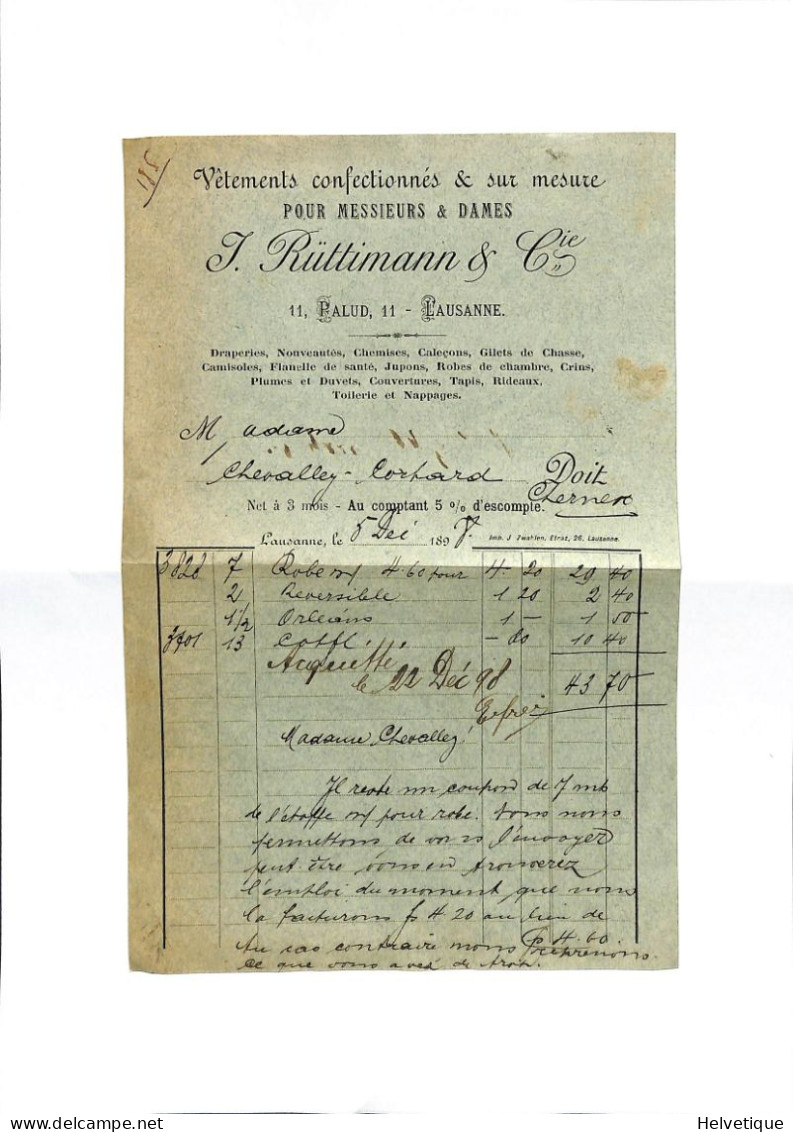 Vêtements confectionnés & sur mesure
POUR MESSIEURS & DAMES
J. Rüttimann & Cie
11, PALUD, 11 - LAUSANNE.
Draperies, Nouveautés, Chemises, Caleçons, Gilets de Chasse,
Camisoles, Flanelle de santé, Jupons, Robes de chambre, Crins,
Plumes et Duvets, Couvertures, Tapis, Rideaux,
Toilerie et Nappages.
Madame
Chevalley-Corhard Doit
Chernex
Net à 3 mois - Au comptant 5 % d'escompte.
Lausanne, le 5 Déc 1898. Imp. J. Zwahlen, Etraz, 26, Lausanne.
3828 7 Robe 4.60 pour 4. 20 29 40
2 Reversible 1 20 2 40
1 1/2 Orléans 1 - 1 50
3701 13 - 80 10 40
Acquitté 43 70
le 22 Déc 98
Madame Chevalley!
Il reste un coupon de 7 mt
de l'étoffe pour robe. nous nous
permettons de vous l'envoyer
peut être vous en trouverez
l'emploi du moment que nous
la facturons fs 4 20 au lieu de
fs 4.60.
Au cas contraire nous reprenons
ce que vous avez de trop.
Helvetique